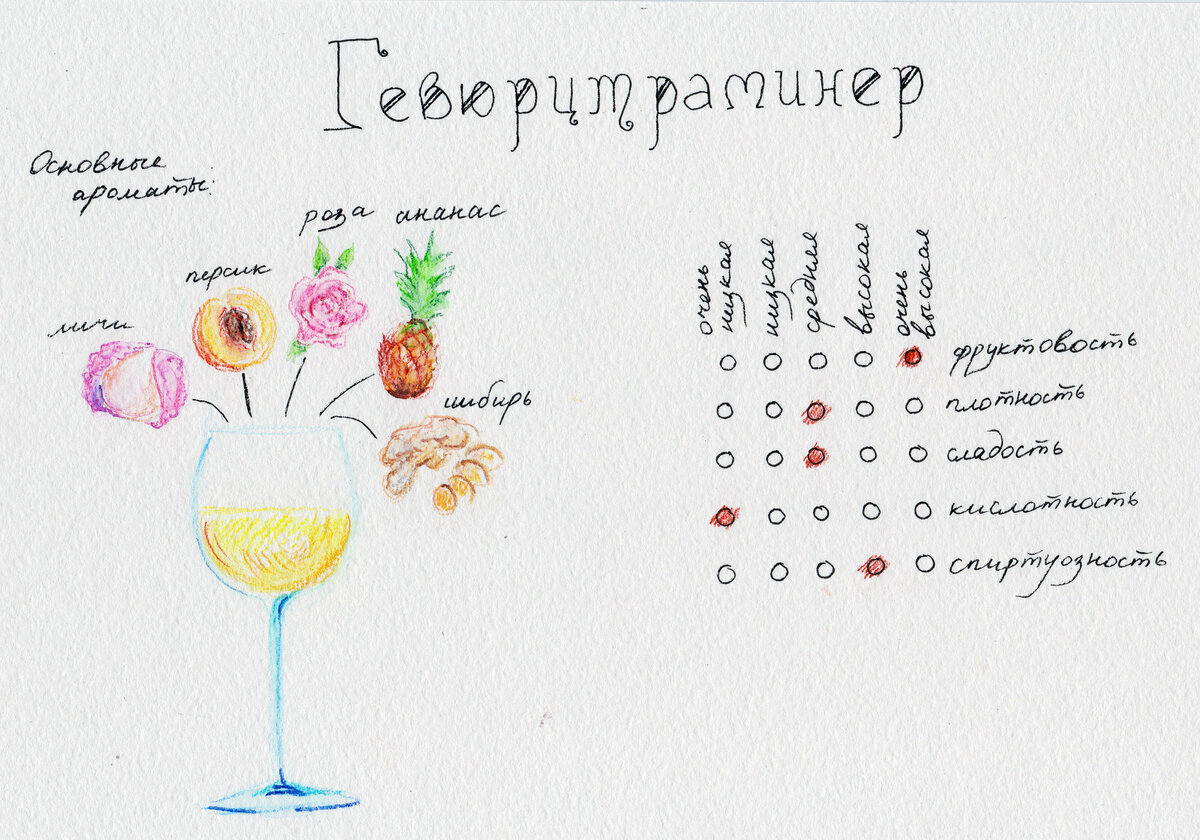 Гевюрцтраминер
Основные
ароматы:
роза
ананас
персик
личи
имбирь
очень
низкая
низкая
средняя
высокая
очень
высокая
фруктовость
плотность
сладость
кислотность
спиртуозность